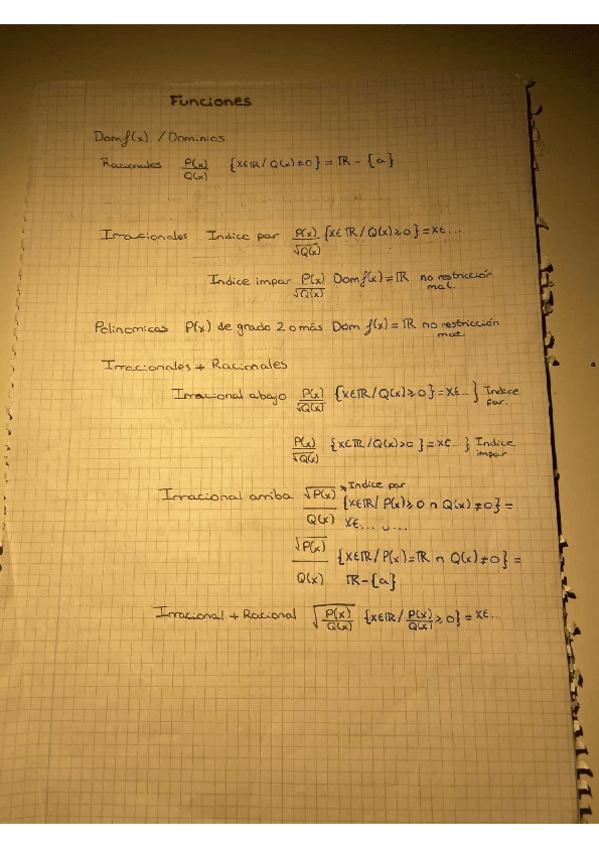 Funciones
Domf(x) / Dominios
Racionales P(x)/Q(x) {x∈ℝ / Q(x)≠0} = ℝ - {a}
Irracionales Indice par P(x)/√Q(x) {x∈ℝ / Q(x)≥0} = x∈...
Indice impar P(x)/√Q(x) Domf(x) = ℝ no restricción
mat.
Polinomicas P(x) de grado 2 o más Dom f(x) = ℝ no restricción
mat.
Irracionales + Racionales
Irracional abajo P(x)/√Q(x) {x∈ℝ / Q(x)≥0} = x∈...} Indice
par.
P(x)/√Q(x) {x∈ℝ / Q(x)>0} = x∈...} Indice
impar
Indice par
Irracional arriba √P(x)/Q(x) {x∈ℝ / P(x)≥0 ∩ Q(x)≠0} =
x∈... ∪ ...
√P(x)/Q(x) {x∈ℝ / P(x)=ℝ ∩ Q(x)≠0} =
ℝ-{a}
Irracional + Racional √P(x)/Q(x) {x∈ℝ / P(x)/Q(x) ≥ 0} = x∈...